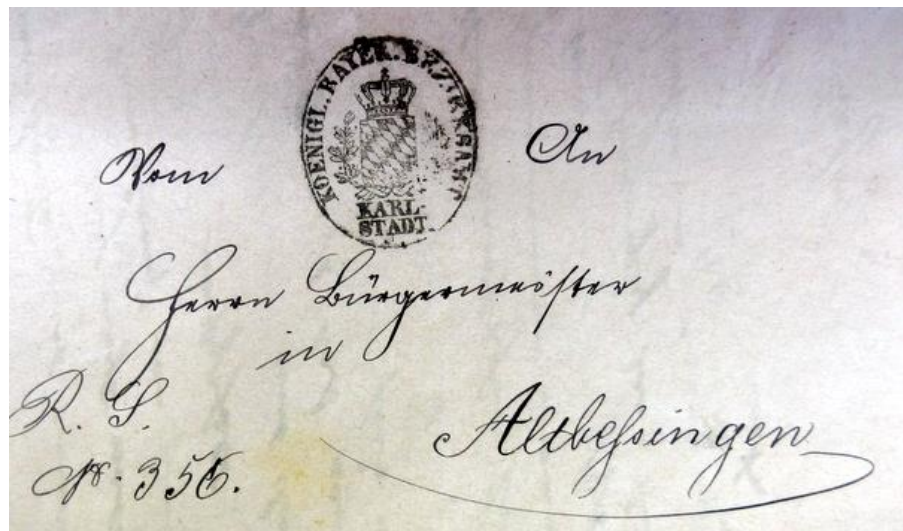 KOENIGL. BAYER. BEZIRKSAMT
KARL-
STADT.
Vom
An
Herrn Bürgermeister
in
R. S.
Altbessingen
№. 356.